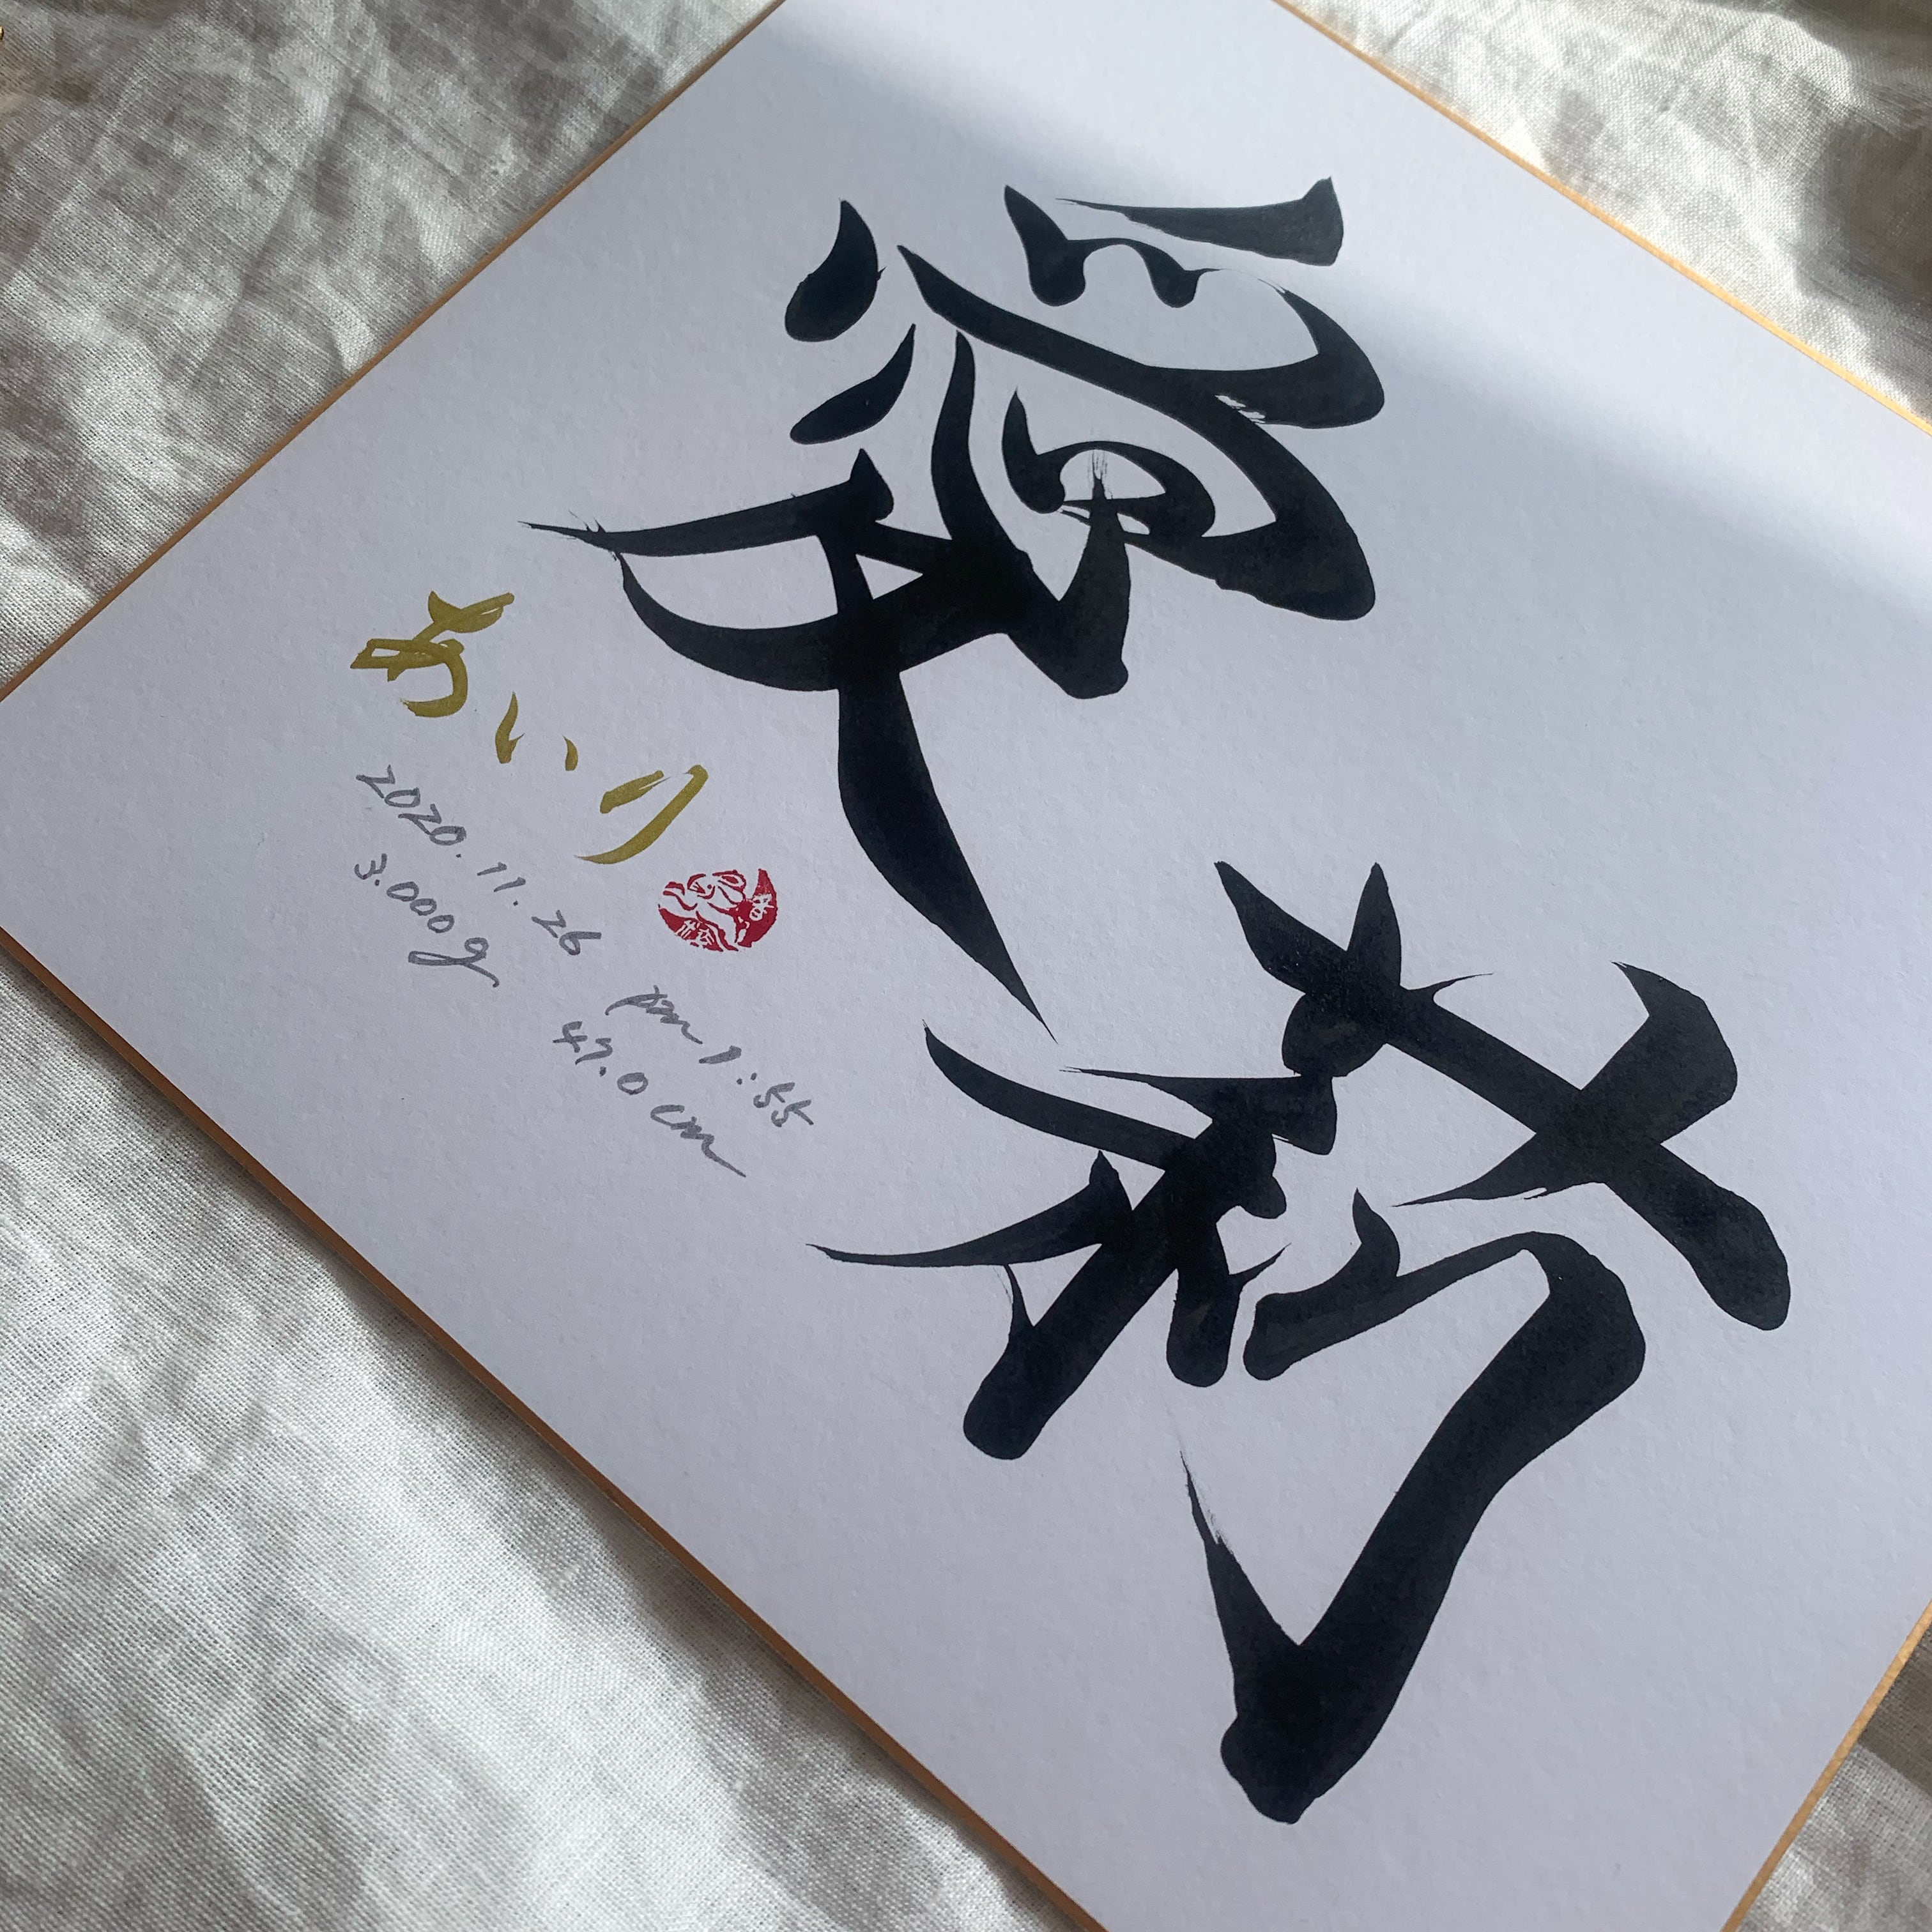 愛莉
あいり
2020.11.26 pm 1:55
3.000g 47.0cm